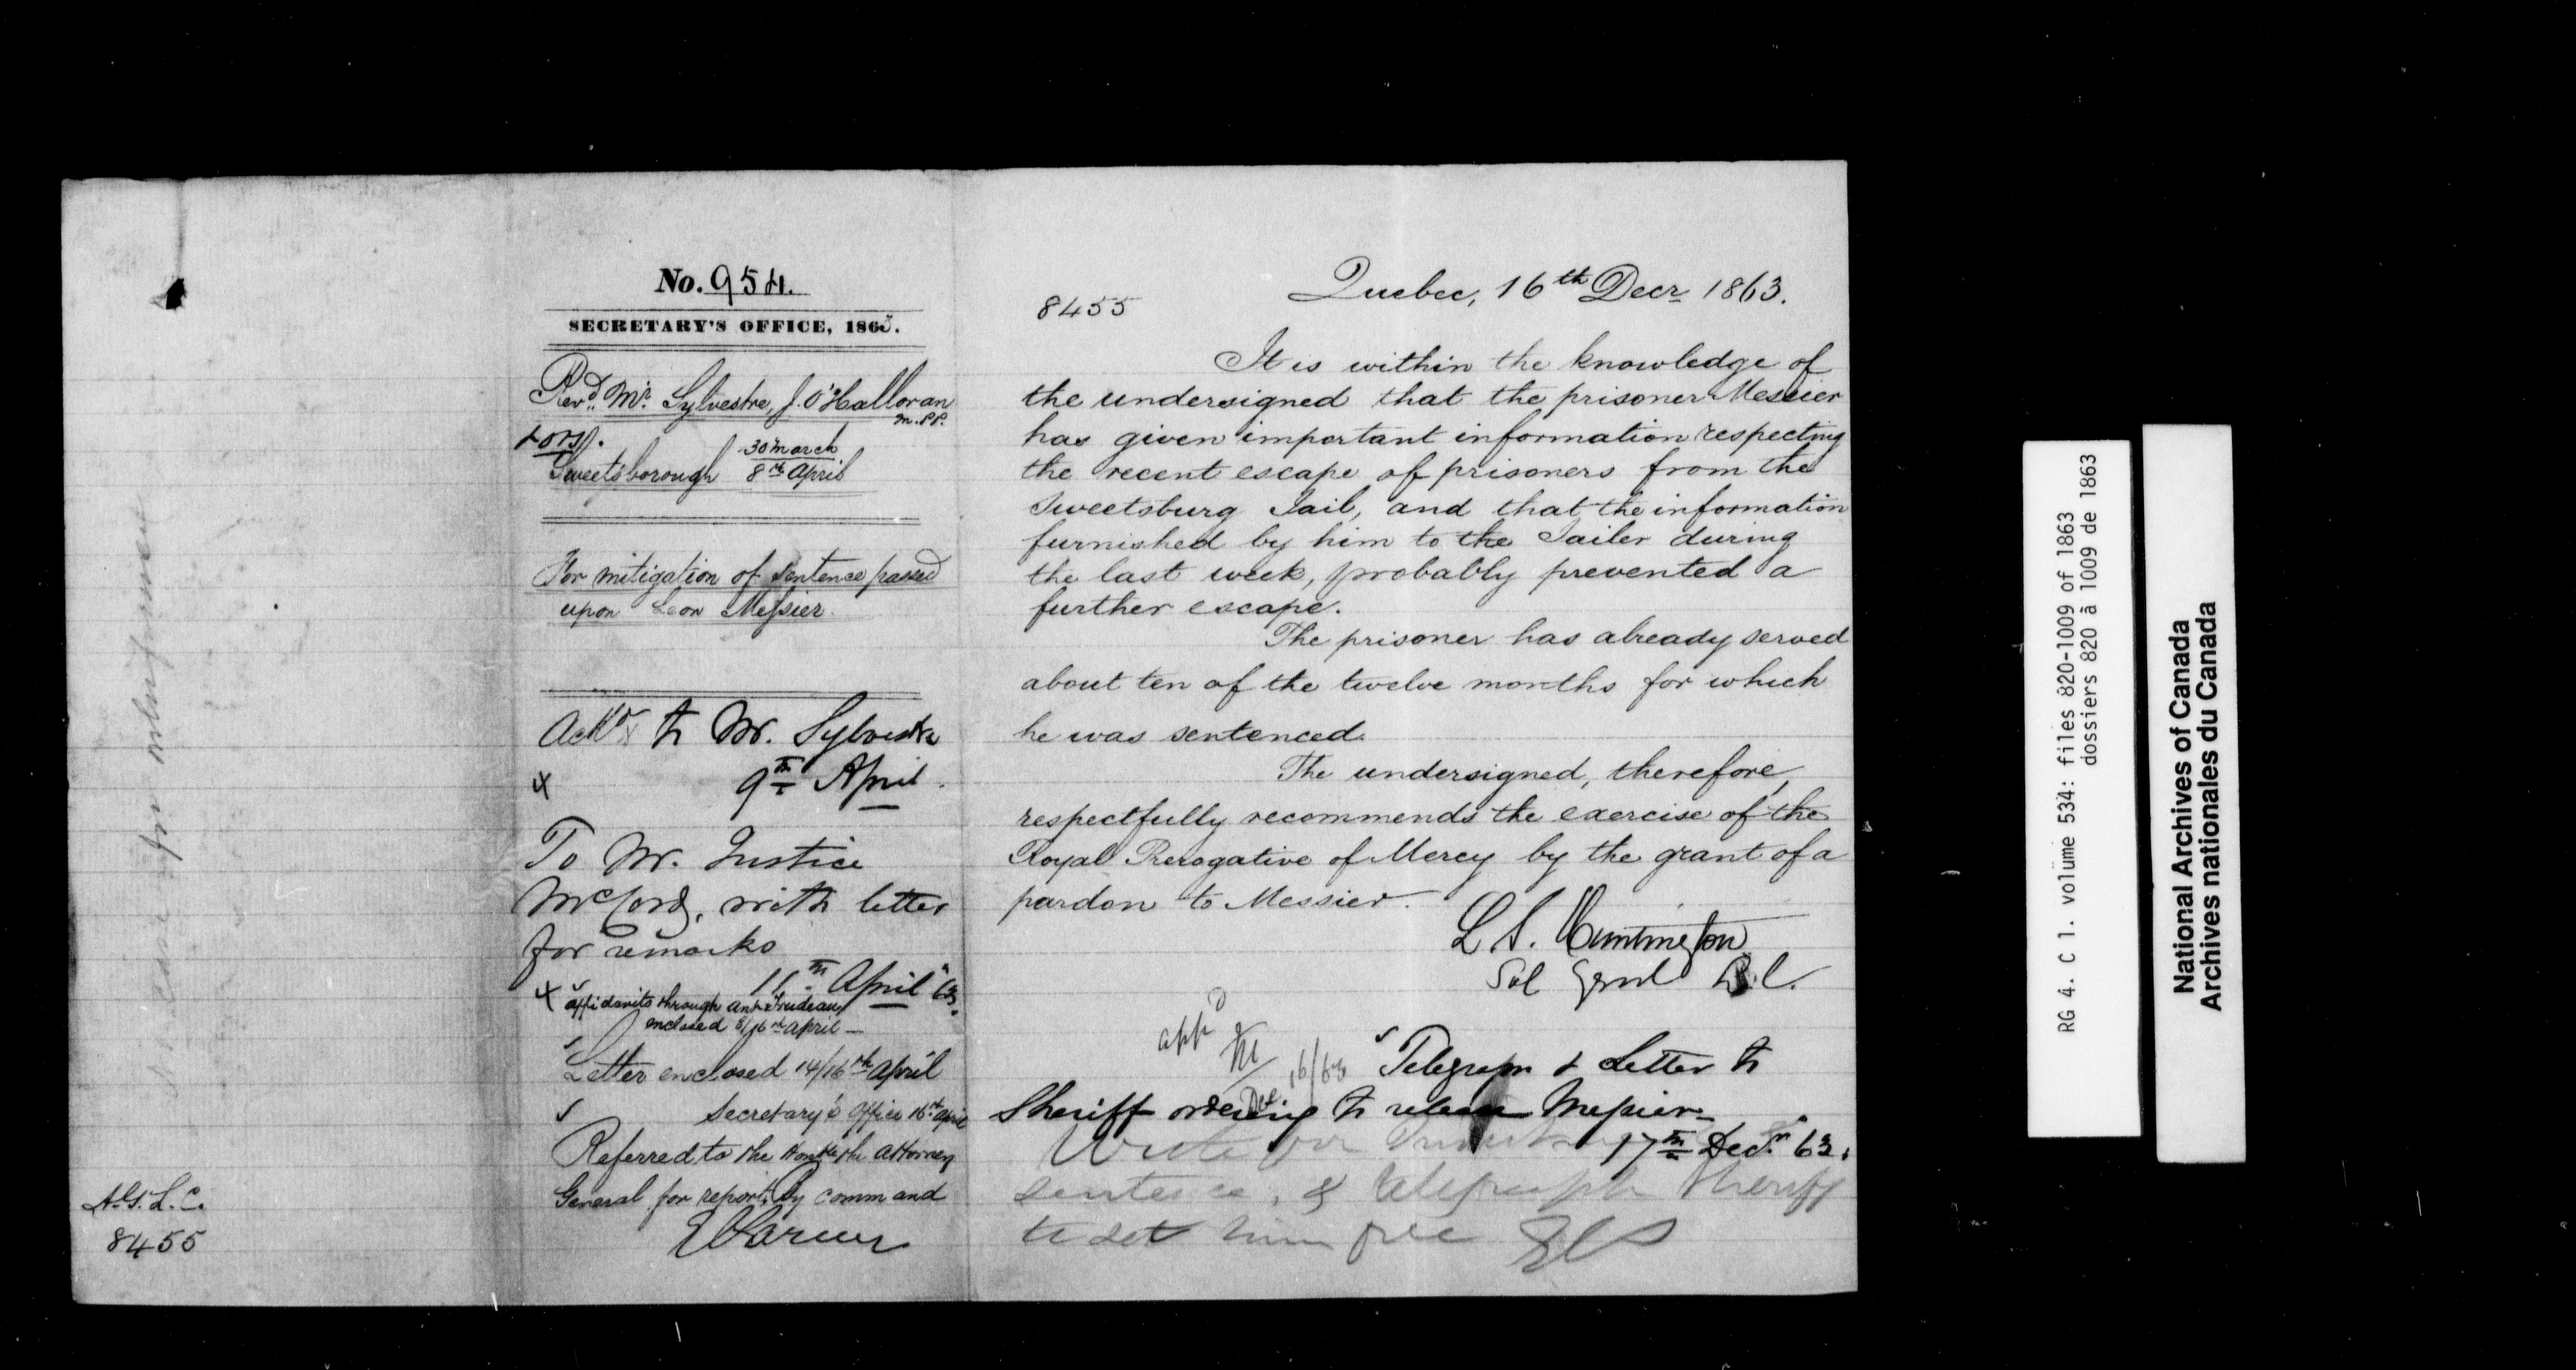 No. 954.
SECRETARY'S OFFICE, 1863.
Revd. Mr. Sylvestre, J. O'Halloran
M.P.P.
& ors.
Sweetsborough 30 March
8th April
For mitigation of Sentence passed
upon Leon Messier.
Ackd to Mr. Sylvestre
9th April.
To Mr. Justice
McCord, with letter
for remarks
11th April "63.
affidavits through Ant. Trudeau
enclosed 8/16th April
Letter enclosed 14/16th April
Secretary's Office 16th April
Referred to the Honble the Attorney
General for report. By command
A.G. L.C.
8455
8455
Quebec, 16th Decr 1863.
It is within the knowledge of
the undersigned that the prisoner Messier
has given important information respecting
the recent escape of prisoners from the
Sweetsburg Jail, and that the information
furnished by him to the Jailer during
the last week, probably prevented a
further escape.
The prisoner has already served
about ten of the twelve months for which
he was sentenced.
The undersigned, therefore,
respectfully recommends the exercise of the
Royal Prerogative of Mercy by the grant of a
pardon to Messier.
L S. Huntington
Sol Genl L.C.
appd
Dec 16/63
Telegraph & Letter to
Sheriff ordering to release Messier
17th Decr. 63.
Write for
sentence, & telegraph Sheriff
to set him free
RG 4. C 1. volume 534: files 820-1009 of 1863
dossiers 820 à 1009 de 1863
National Archives of Canada
Archives nationales du Canada